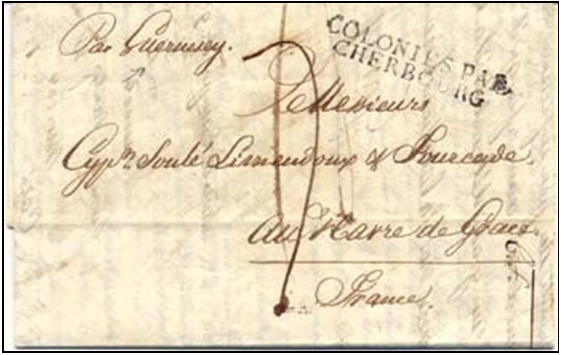 Par Guernesey.
COLONIES PAR
CHERBOURG
Messieurs
Cypn. Soulé Limendoux & Fourcade.
Au Havre de Grace
France.